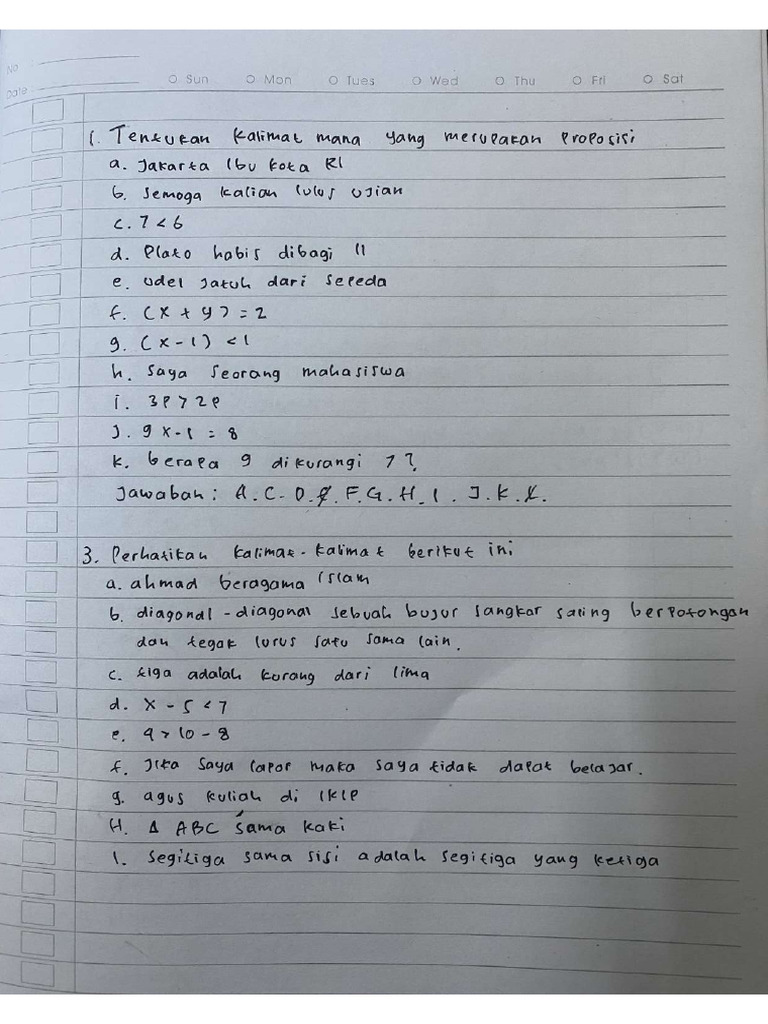 No
Date
Sun Mon Tues Wed Thu Fri Sat
1. Tentukan kalimat mana yang merupakan proposisi
a. Jakarta Ibu kota RI
b. Semoga kalian lulus ujian
c. 7 < 6
d. Plato habis dibagi 11
e. Udel jatuh dari sepeda
f. (x + y) = 2
g. (x - 1) < 1
h. Saya seorang mahasiswa
i. 3p > 2p
J. 9 x - 1 = 8
k. berapa 9 dikurangi 7?
Jawaban : A. C. D. F. G. H. I. J. K.
3. Perhatikan kalimat-kalimat berikut ini
a. ahmad beragama Islam
b. diagonal-diagonal sebuah bujur sangkar saling berpotongan
dan tegak lurus satu sama lain.
c. tiga adalah kurang dari lima
d. x - 5 < 7
e. 9 > 10 - 8
f. Jika saya lapor maka saya tidak dapat belajar.
g. agus kuliah di IKIP
H. Δ ABC sama kaki
I. segitiga sama sisi adalah segitiga yang ketiga